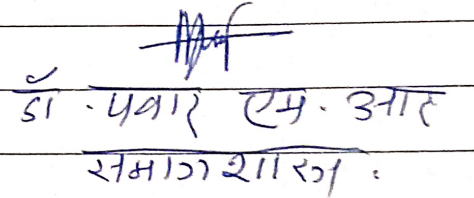 डॉ. पवार एम. आर
समाजशास्त्र.